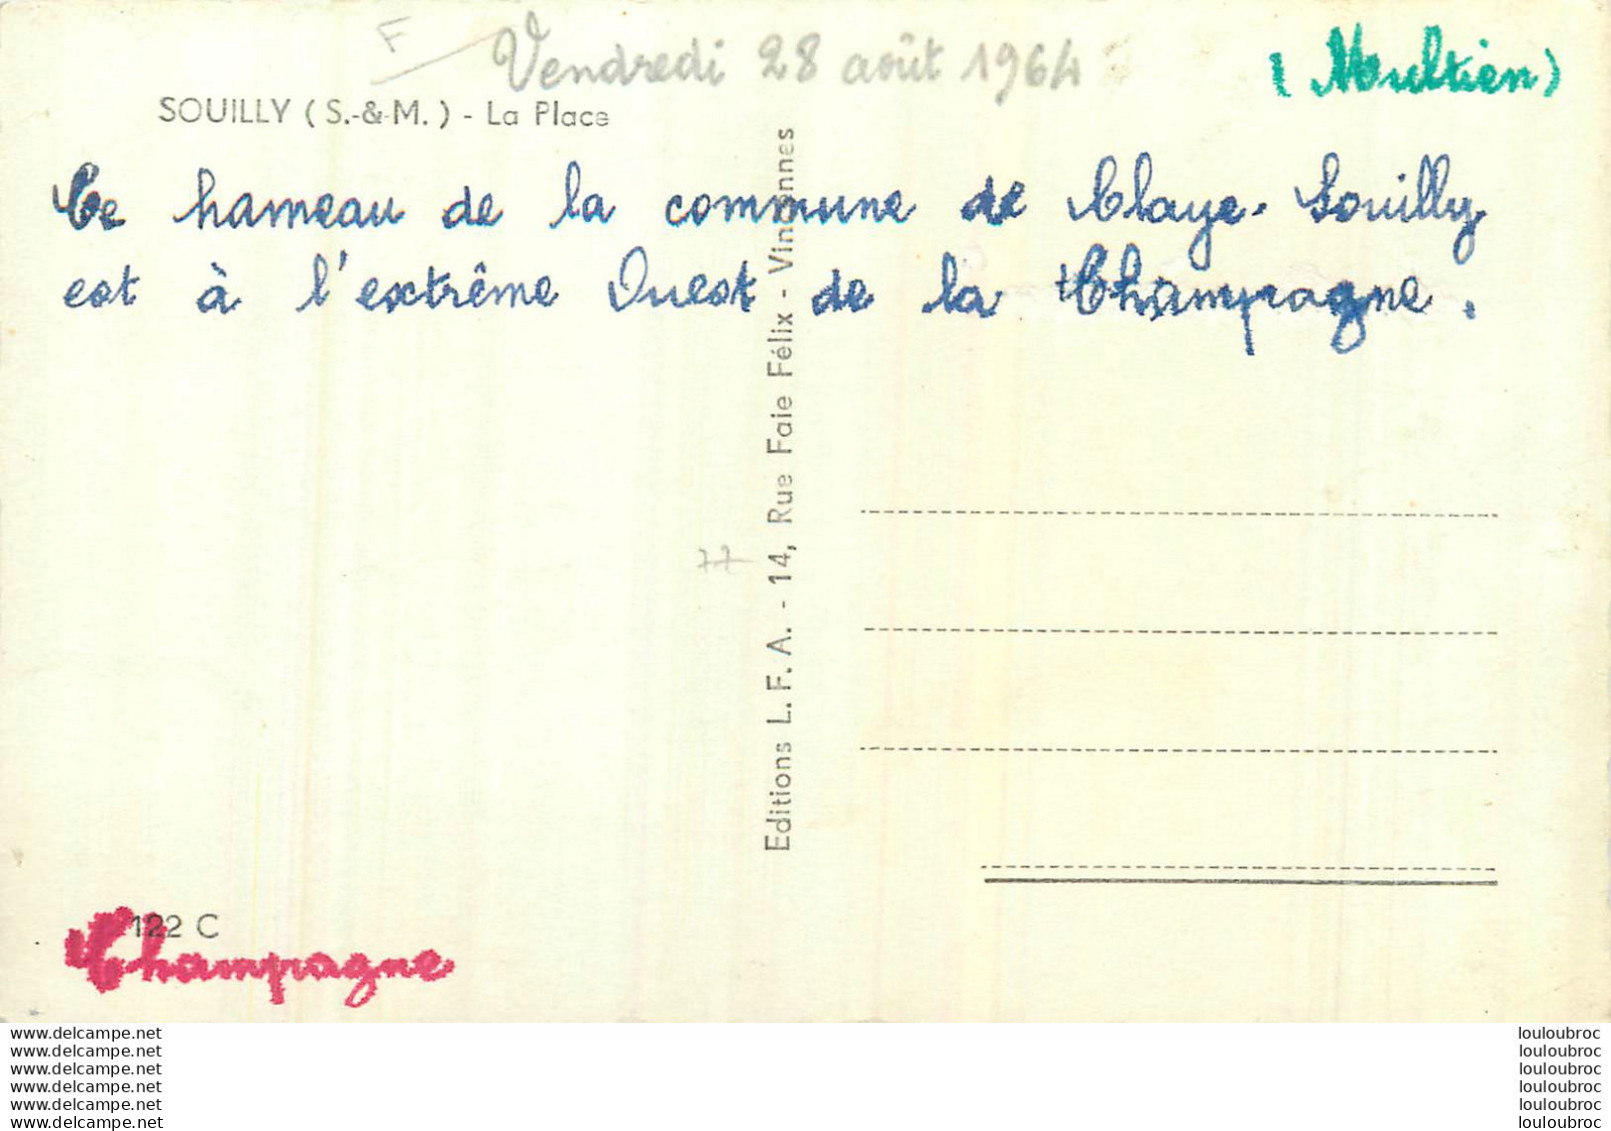 F Vendredi 28 août 1964
(Multien)
SOUILLY (S.-&-M.) - La Place
Ce hameau de la commune de Claye-Souilly
est à l'extrême Ouest de la Champagne.
77
Editions L.F.A. - 14, Rue Faie Félix - Vincennes
122 C
Champagne
www.delcampe.net
www.delcampe.net
www.delcampe.net
www.delcampe.net
www.delcampe.net
www.delcampe.net
louloubroc
louloubroc
louloubroc
louloubroc
louloubroc
louloubroc